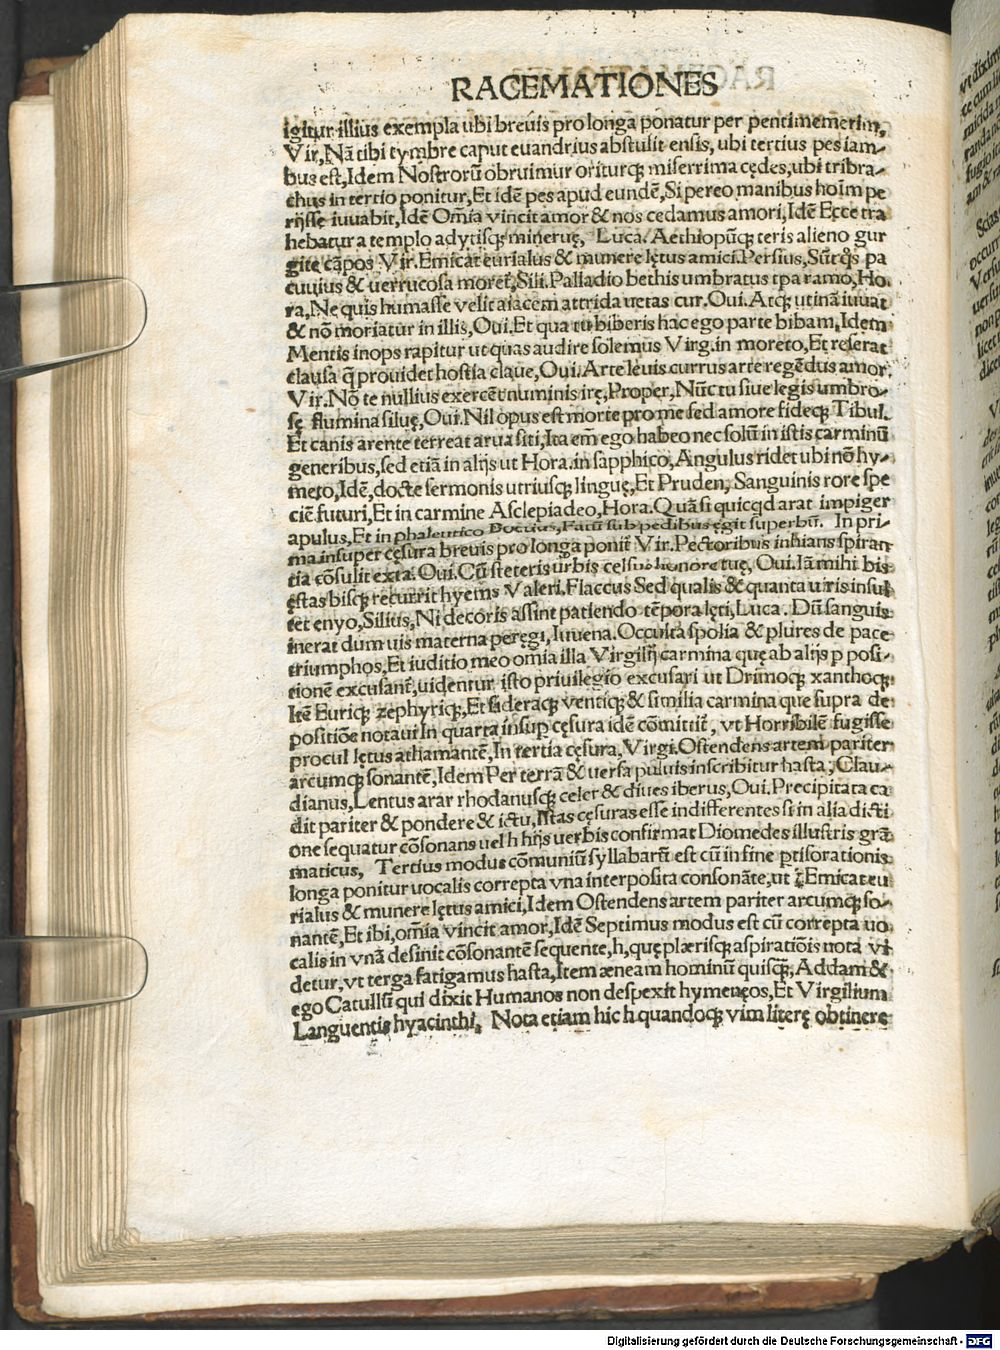 RACEMATIONES
igitur illius exempla ubi breuis pro longa ponatur per pentimemerim,
Vir, Nã tibi tymbre caput euandrius abstulit ensis, ubi tertius pes iam-
bus est, Idem Nostrorũ obruimur oriturq; miserrima cędes, ubi tribra-
chus in tertio ponitur, Et idẽ pes apud eundẽ, Si pereo manibus hoĩm pe
rijsse iuuabit, Idẽ Omĩa vincit amor & nos cedamus amori, Idẽ Ecce tra
hebatur a templo adytisq; mineruę, Luca. Aethiopũq; teris alieno gur
gite cãpos Vir. Emicat eurialus & munere lętus amici. Persius, Sũt q̃s pa
cuuius & uerrucosa moret̃, Sili. Palladio bethis umbratus tpa ramo, Ho,
ra, Ne quis humasse velit aiacem attrida uetas cur. Oui. Atq; utinã iuuat
& nõ moriatur in illis, Oui. Et qua tu biberis hac ego parte bibam, Idem
Mentis inops rapitur ut quas audire solemus Virg. in moreto, Et reserat
clausa q̃ prouidet hostia claue, Oui. Arte leuis currus arte regẽdus amor,
Vir. Nõ te nullius exercẽt numinis irę, Proper, Nũc tu siue legis umbro-
sę flumina siluę, Oui. Nil opus est morte pro me sed amore fideq; Tibul.
Et canis arente terreat arua siti, Ita em̃ ego habeo nec solũ in istis carminũ
generibus, sed etiã in alijs ut Hora. in sapphico, Angulus ridet ubi nõ hy-
meto, Idẽ, docte sermonis utriusq; linguę, Et Pruden, Sanguinis rore spe
ciẽ futuri, Et in carmine Asclepiadeo, Hora. Quã si quicq̃d arat impiger
apulus, Et in phaleutico Boetius, Fatũ sub pedibus ęgit superbũ. In pri-
ma insuper cęsura breuis pro longa ponit̃ Vir. Pectoribus inhians spiran
tia cõsulit exta. Oui. Cũ steteris urbis celsus honore tuę, Oui. Iã mihi bis
ęstas bisq; recurrit hyems Valeri. Flaccus Sed qualis & quanta uiris insul
tet enyo, Silius, Ni decoris assint patiendo tẽpora lęti, Luca. Dũ sanguis
inerat dum uis materna peręgi, Iuuena. Occulta spolia & plures de pace
triumphos, Et iuditio meo omĩa illa Virgilij carmina quę ab alijs p posi-
tionẽ excusant̃, uidentur isto priuilegio excusari ut Drimoq; xanthoq;
Itẽ Euriq; zephyriq;, Et sideraq; ventiq; & similia carmina que supra de
positiõe notaui In quarta insup cęsura idẽ cõmittit̃, vt Horribilẽ fugisse
procul lętus athamantẽ, In tertia cęsura, Virgi. Ostendens artem pariter
arcumq; sonantẽ, Idem Per terrã & uersa puluis inscribitur hasta, Clau-
dianus, Lentus arar rhodanusq; celer & diues iberus, Oui. Precipitata ca
dit pariter & pondere & ictu, Istas cęsuras esse indifferentes si in alia dicti
one sequatur cõsonans uel h hijs uerbis confirmat Diomedes illustris grã
maticus, Tertius modus cõmuniũ syllabarũ est cũ in fine ptis orationis
longa ponitur uocalis correpta vna interposita consonãte, ut ĩ Emicat eu
rialus & munere lętus amici, Idem Ostendens artem pariter arcumq; so-
nantẽ, Et ibi, omĩa vincit amor, Idẽ Septimus modus est cũ correpta uo
calis in vnã desinit cõsonantẽ sequente, h, quę plærisq; aspiratiõis nota vi
detur, vt terga fatigamus hasta, Item æneam hominũ quisq̃;, Addam &
ego Catullũ qui dixit Humanos non despexit hymenęos, Et Virgilium
Languentis hyacinthi, Nota etiam hic h quandoq; vim literę obtinere
Digitalisierung gefördert durch die Deutsche Forschungsgemeinschaft - DFG